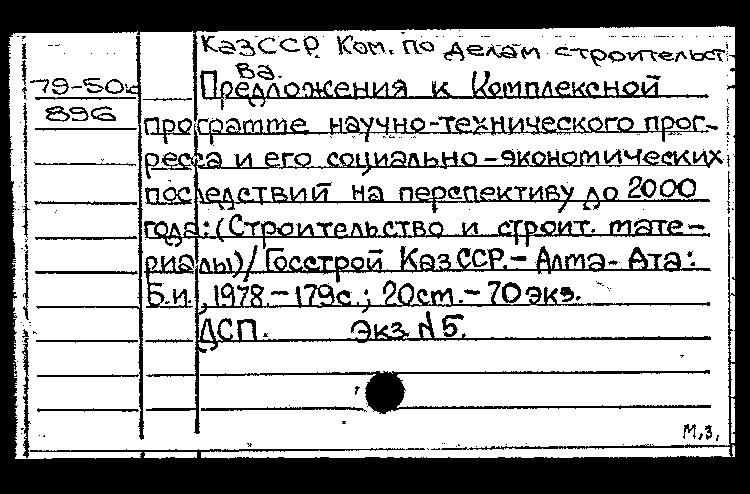 КазССР. Ком. по делам строительст-
ва.
79-50к
896
Предложения к Комплексной
программе научно-технического прог-
ресса и его социально-экономических
последствий на перспективу до 2000
года: (Строительство и строит. мате-
риалы) / Госстрой КазССР. - Алма-Ата:
Б.и., 1978. - 179с.; 20см. - 70 экз.
ДСП. Экз N 5.
М,З,